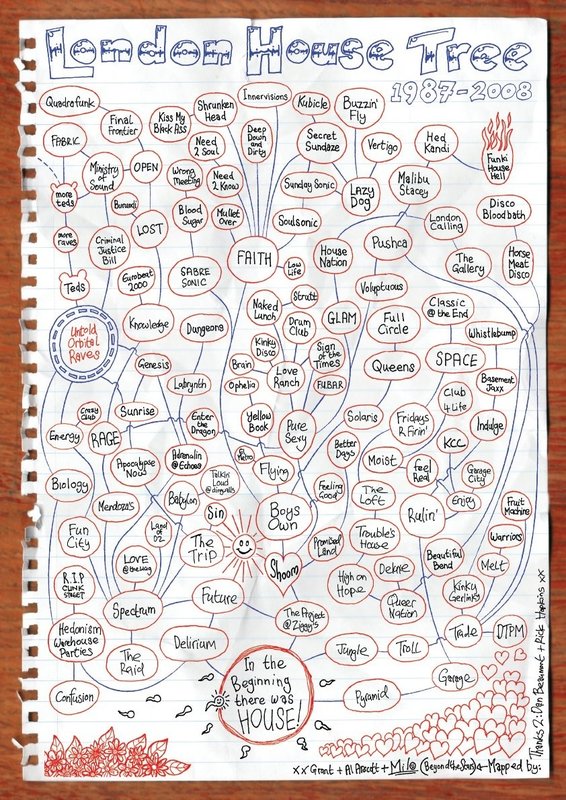 London House Tree
1987-2008
Quadrafunk
Final
Frontier
Kiss My
Black Ass
Shrunken
Head
Innervisions
Kubicle
Buzzin'
Fly
FABRIC
Ministry
of
Sound
OPEN
Need
2 Soul
Deep
Down
and
Dirty
Secret
Sundaze
Vertigo
Hed
Kandi
Funki
House
Hell
more
teds
Burundi
Wrong
Meeting
Need
2 Know
Sunday Sonic
LAZY
DOG
Malibu
Stacey
Disco
Bloodbath
more
raves
Criminal
Justice
Bill
LOST
Blood
Sugar
Mullet
Over
Soulsonic
London
Calling
Teds
Eurobeat
2000
SABRE
SONIC
FAITH
Low
Life
House
Nation
Pushca
The
Gallery
Horse
Meat
Disco
Untold
Orbital
Raves
Knowledge
Dungeons
Naked
Lunch
Strutt
Drum
Club
GLAM
Voluptuous
Full
Circle
Classic
@ the End
Whistlebump
Genesis
Labrynth
Kinky
Disco
Brain
Ophelia
Love
Ranch
Sign
of the
Times
FUBAR
Queens
SPACE
Basement
Jaxx
Crazy
Club
Sunrise
Enter
the
Dragon
Yellow
Book
Pure
Sexy
Solaris
Fridays
R Firin'
Club
4 Life
Indulge
Energy
RAGE
Apocalypse
Now
Adrenalin
@ Echoes
Talkin
Loud
@ dingwalls
Flying
Better
Days
Moist
Feel
Real
KCC
Garage
City
Biology
Mendoza's
Babylon
Sin
Boys
Own
Feeling
Good
The
Loft
Rulin'
Enjoy
Fruit
Machine
Fun
City
Land
of
OZ
The
Trip
Promised
Land
Trouble's
House
Beautiful
Bend
Warriors
R.I.P
CLINK
STREET
LOVE
@ the wag
Shoom
High on
Hope
Delirie
Kinky
Gerlinky
Melt
Spectrum
Future
The Project
@ Ziggy's
Queer
Nation
Hedonism
Warehouse
Parties
The
Raid
Delirium
Jungle
Troll
Trade
DTPM
Confusion
In the
Beginning
there was
HOUSE!
Pyramid
Garage
xx Grant + Al Arscott + Milo (Beyond the Stars) Mapped by:
Thanks 2: Dan Beaumont + Rick Hopkins xx